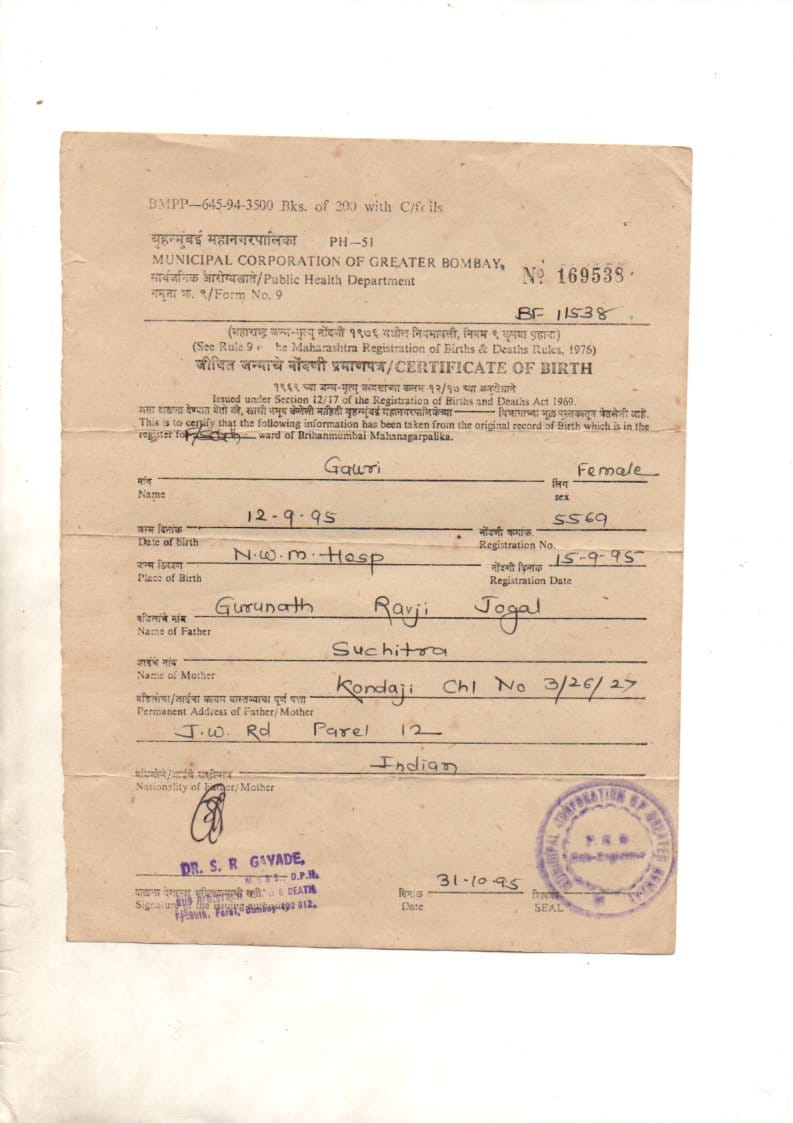 BMPP—645-94-3500 Bks. of 200 with C/foils
बृहन्मुंबई महानगरपालिका PH—51
MUNICIPAL CORPORATION OF GREATER BOMBAY,
सार्वजनिक आरोग्यखाते/Public Health Department
No 169538
नमुना क्र. ९/Form No. 9
BF 11538
(महाराष्ट्र जन्म-मृत्यु नोंदणी १९७६ मधील नियमावली, नियम ९ कृपया पहावा)
(See Rule 9 he Maharashtra Registration of Births & Deaths Rules, 1976)
जीवित जन्माचे नोंदणी प्रमाणपत्र/CERTIFICATE OF BIRTH
१९६९ च्या जन्म-मृत्यु कायद्याच्या कलम १२/१७ च्या अन्वयाने
Issued under Section 12/17 of the Registration of Births and Deaths Act 1969.
असा दाखला देण्यात येतो की, खाली नमूद केलेली माहिती बृहन्मुंबई महानगरपालिकेच्या विभागाच्या मूळ पुस्तकातून घेतलेली आहे.
This is to certify that the following information has been taken from the original record of Birth which is in the
register for ward of Brihanmumbai Mahanagarpalika.
नांव Gauri लिंग Female
Name sex
जन्म दिनांक 12-9-95 नोंदणी क्रमांक 5569
Date of birth Registration No.
जन्म ठिकाण N.W.M. Hosp नोंदणी दिनांक 15-9-95
Place of Birth Registration Date
वडिलांचे नांव Gurunath Ravji Jogal
Name of Father
आईचे नांव Suchitra
Name of Mother
वडिलांचा/आईचा कायम वास्तव्याचा पूर्ण पत्ता Kondaji Chl No 3/26/27
Permanent Address of Father/Mother
J.W. Rd Parel 12
Indian
Nationality of Father/Mother
DR. S. R GAVADE,
M.B.B.S. D.P.H.
SUB REGISTRAR & DEATH
F/South, Parel, Bombay-400 012.
Signature of the issuing authority
दिनांक 31-10-95
Date SEAL
MUNICIPAL CORPORATION OF GREATER BOMBAY